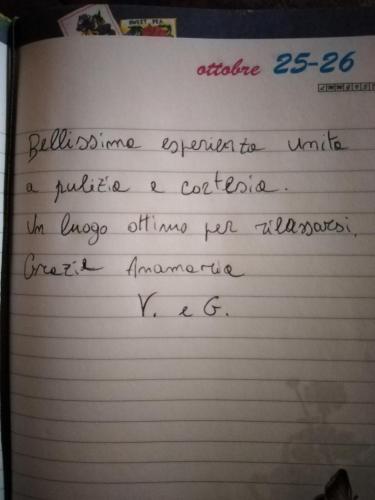 SWEET PEA
ottobre 25-26
Bellissima esperienza unita
a pulizia e cortesia.
Un luogo ottimo per rilassarsi.
Grazie Anamaria
V. e G.